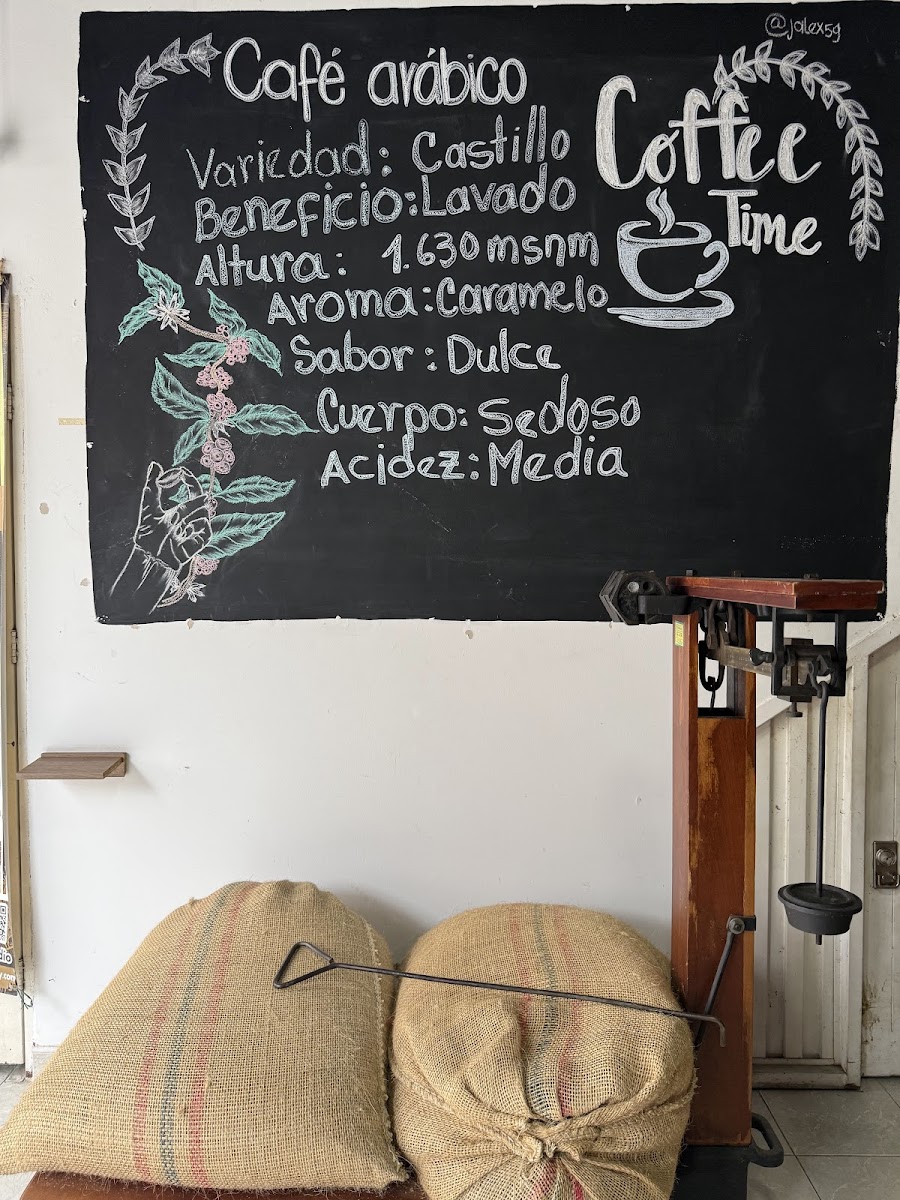 @jalex59
Café arábico
Variedad: Castillo
Beneficio: Lavado
Altura: 1.630 msnm
Aroma: Caramelo
Sabor: Dulce
Cuerpo: Sedoso
Acidez: Media
Coffee
Time